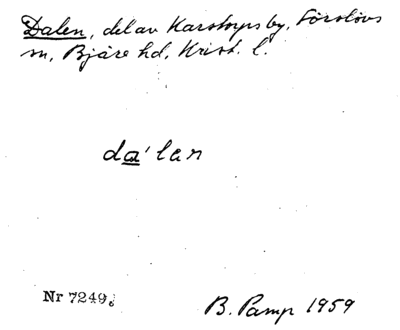 Dalen, del av Karstorps by, Förslövs
sn, Bjäre hd, Krist. l.
da'lan
Nr 7249.
B. Pamp 1959